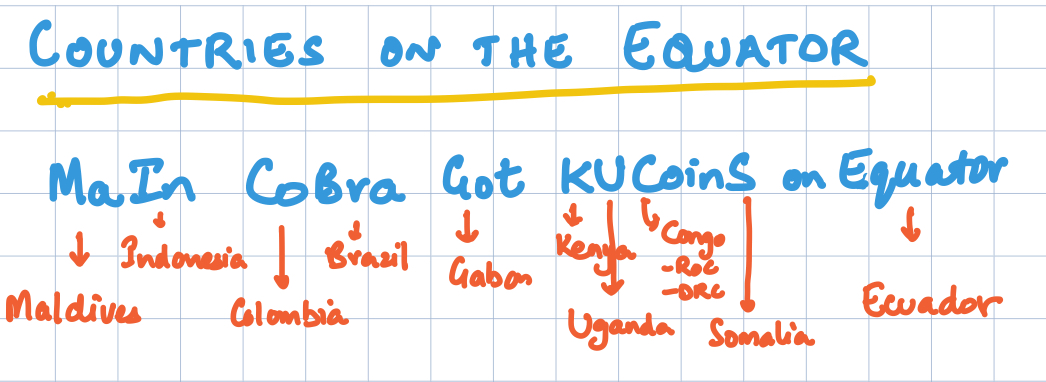 COUNTRIES ON THE EQUATOR
MaIn CoBra Got KUCoinS on Equator
Indonesia Brazil Kenya Congo
-ROC
Gabon
-DRC
Maldives Colombia Uganda Somalia Ecuador